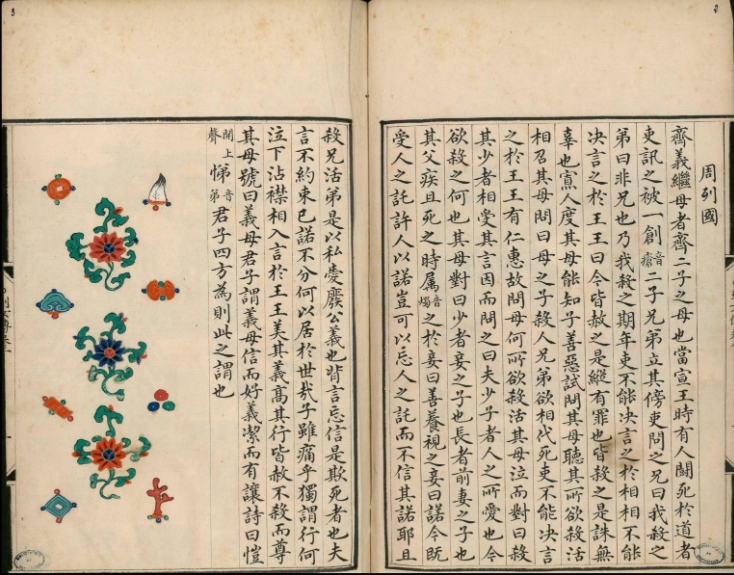 周列國
齊義繼母者齊二子之母也當宣王時有人鬭死於道者
吏訊之被一創音瘡二子兄弟立其傍吏問之兄曰我殺之
弟曰非兄也乃我殺之期年吏不能決言之於相相不能
決言之於王王曰今皆赦之是縱有罪也皆殺之是誅無
辜也寡人度其母能知子善惡試問其母聽其所欲殺活
相召其母問曰母之子殺人兄弟欲相代死吏不能決言
之於王王有仁惠故問母何所欲殺活其母泣而對曰殺
其少者相受其言因而問之曰夫少子者人之所愛也今
欲殺之何也其母對曰少者妾之子也長者前妻之子也
其父疾且死之時属音燭之於妾曰善養視之妾曰諾今既
受人之託許人以諾豈可以忘人之託而不信其諾耶且
殺兄活弟是以私愛廢公義也背言忘信是欺死者也夫
言不約束已諾不分何以居於世哉子雖痛乎獨謂行何
泣下沾襟相入言於王王美其義高其行皆赦不殺而尊
其母號曰義母君子謂義母信而好義潔而有讓詩曰愷
開上聲悌音弟君子四方為則此之謂也